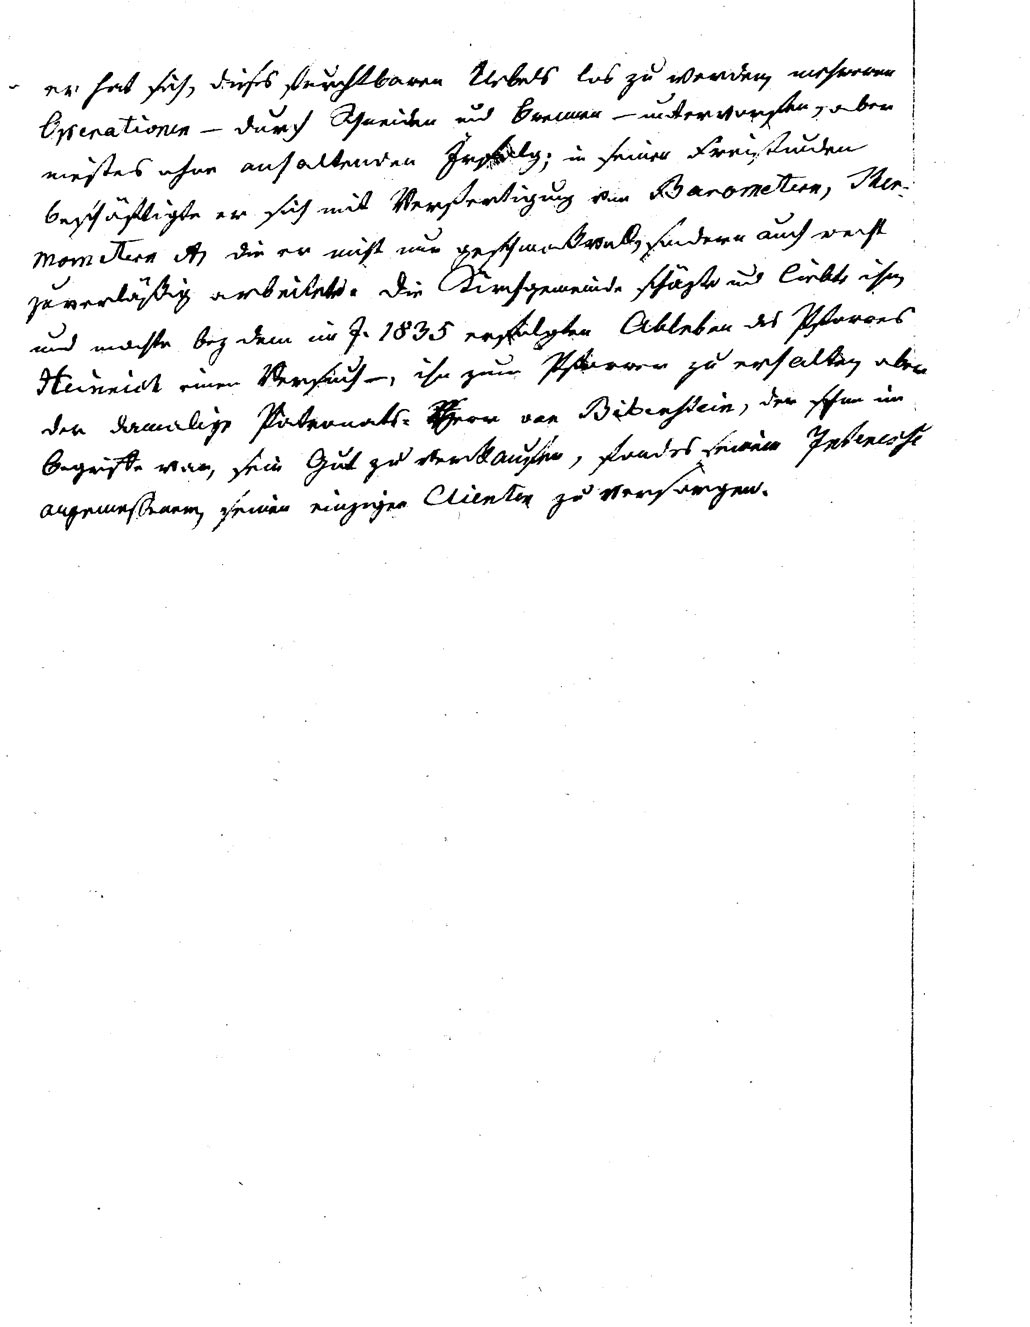 er hat sich, dieses furchtbaren Uebels los zu werden, mehreren
Operationen – durch Schneiden und Brennen – unterworfen, aber
meistes ohne anhaltenden Erfolg; in seinen Freistunden
beschäftigte er sich mit Verfertigung von Barometern, Ther-
mometern die er nicht nur geschmackvoll, sondern auch recht
zuverläßig arbeitete. Die Kirchgemeinde schäzte und liebte ihn,
und machte bey dem im J. 1835 erfolgten Ableben des Pfarrers
Heinrich einen Versuch –, ihn zum Pfarrer zu erhalten, aber
der damalige Patronats-Herr von Bibenstein, der schon im
begriffe war, sein Gut zu verkaufen, fandes seinem Interesse
angemessener, seinen einzigen Clienten zu versorgen.